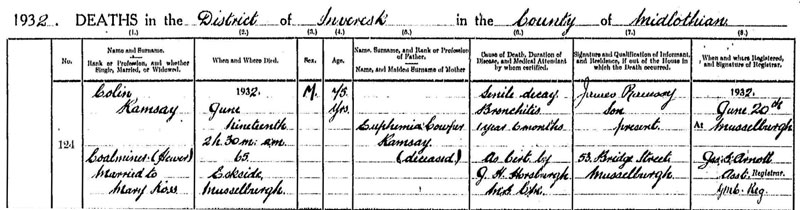 1932. DEATHS in the District of Inveresk in the County of Midlothian
(1.) (2.) (3.) (4.) (5.) (6.) (7.) (8.)
No.
Name and Surname.
Rank or Profession, and whether
Single, Married, or Widowed.
When and Where Died.
Sex.
Age.
Name, Surname, and Rank or Profession
of Father.
Name, and Maiden Surname of Mother
Cause of Death, Duration of
Disease, and Medical Attendant
by whom certified.
Signature and Qualification of Informant,
and Residence, if out of the House in
which the Death occurred.
When and where Registered,
and Signature of Registrar.
124
Colin
Ramsay
Coalminer (Hewer)
Married to
Mary Ross
1932
June
nineteenth
2h. 30m. a.m.
65.
Eskside,
Musselburgh.
M.
75.
Yrs.
Euphemia Cowper
Ramsay.
(deceased)
Senile decay
Bronchitis
1 year 6 months
As Cert. by
J. H. Horsburgh
M.B. Ch.B.
James Ramsay
Son
present.
53. Bridge Street,
Musselburgh.
1932.
June 20th
At Musselburgh
Jas. Arnott
Asst. Registrar.